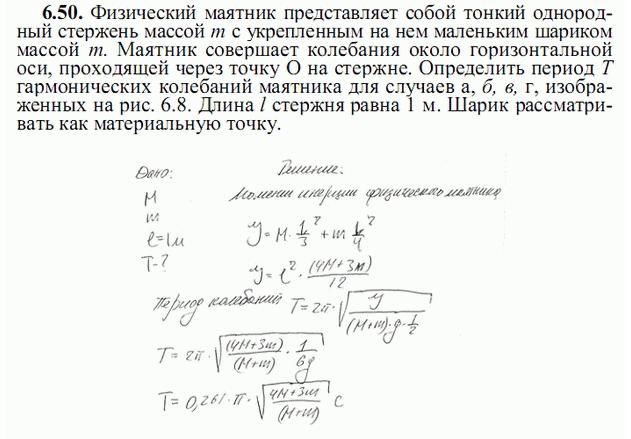 6.50. Физический маятник представляет собой тонкий однород-
ный стержень массой m с укрепленным на нем маленьким шариком
массой m. Маятник совершает колебания около горизонтальной
оси, проходящей через точку О на стержне. Определить период T
гармонических колебаний маятника для случаев а, б, в, г, изобра-
женных на рис. 6.8. Длина l стержня равна 1 м. Шарик рассматри-
вать как материальную точку.
Дано: Решение:
M Момент инерции физического маятника
m
l=1м y=M·l²/3+m l²/4
T-? y=l²·(4M+3m)/12
Период колебаний T=2π·√(y/((M+m)·g·l/2))
T=2π·√((4M+3m)/(M+m)·1/6g)
T=0,261·π·√((4M+3m)/(M+m)) c